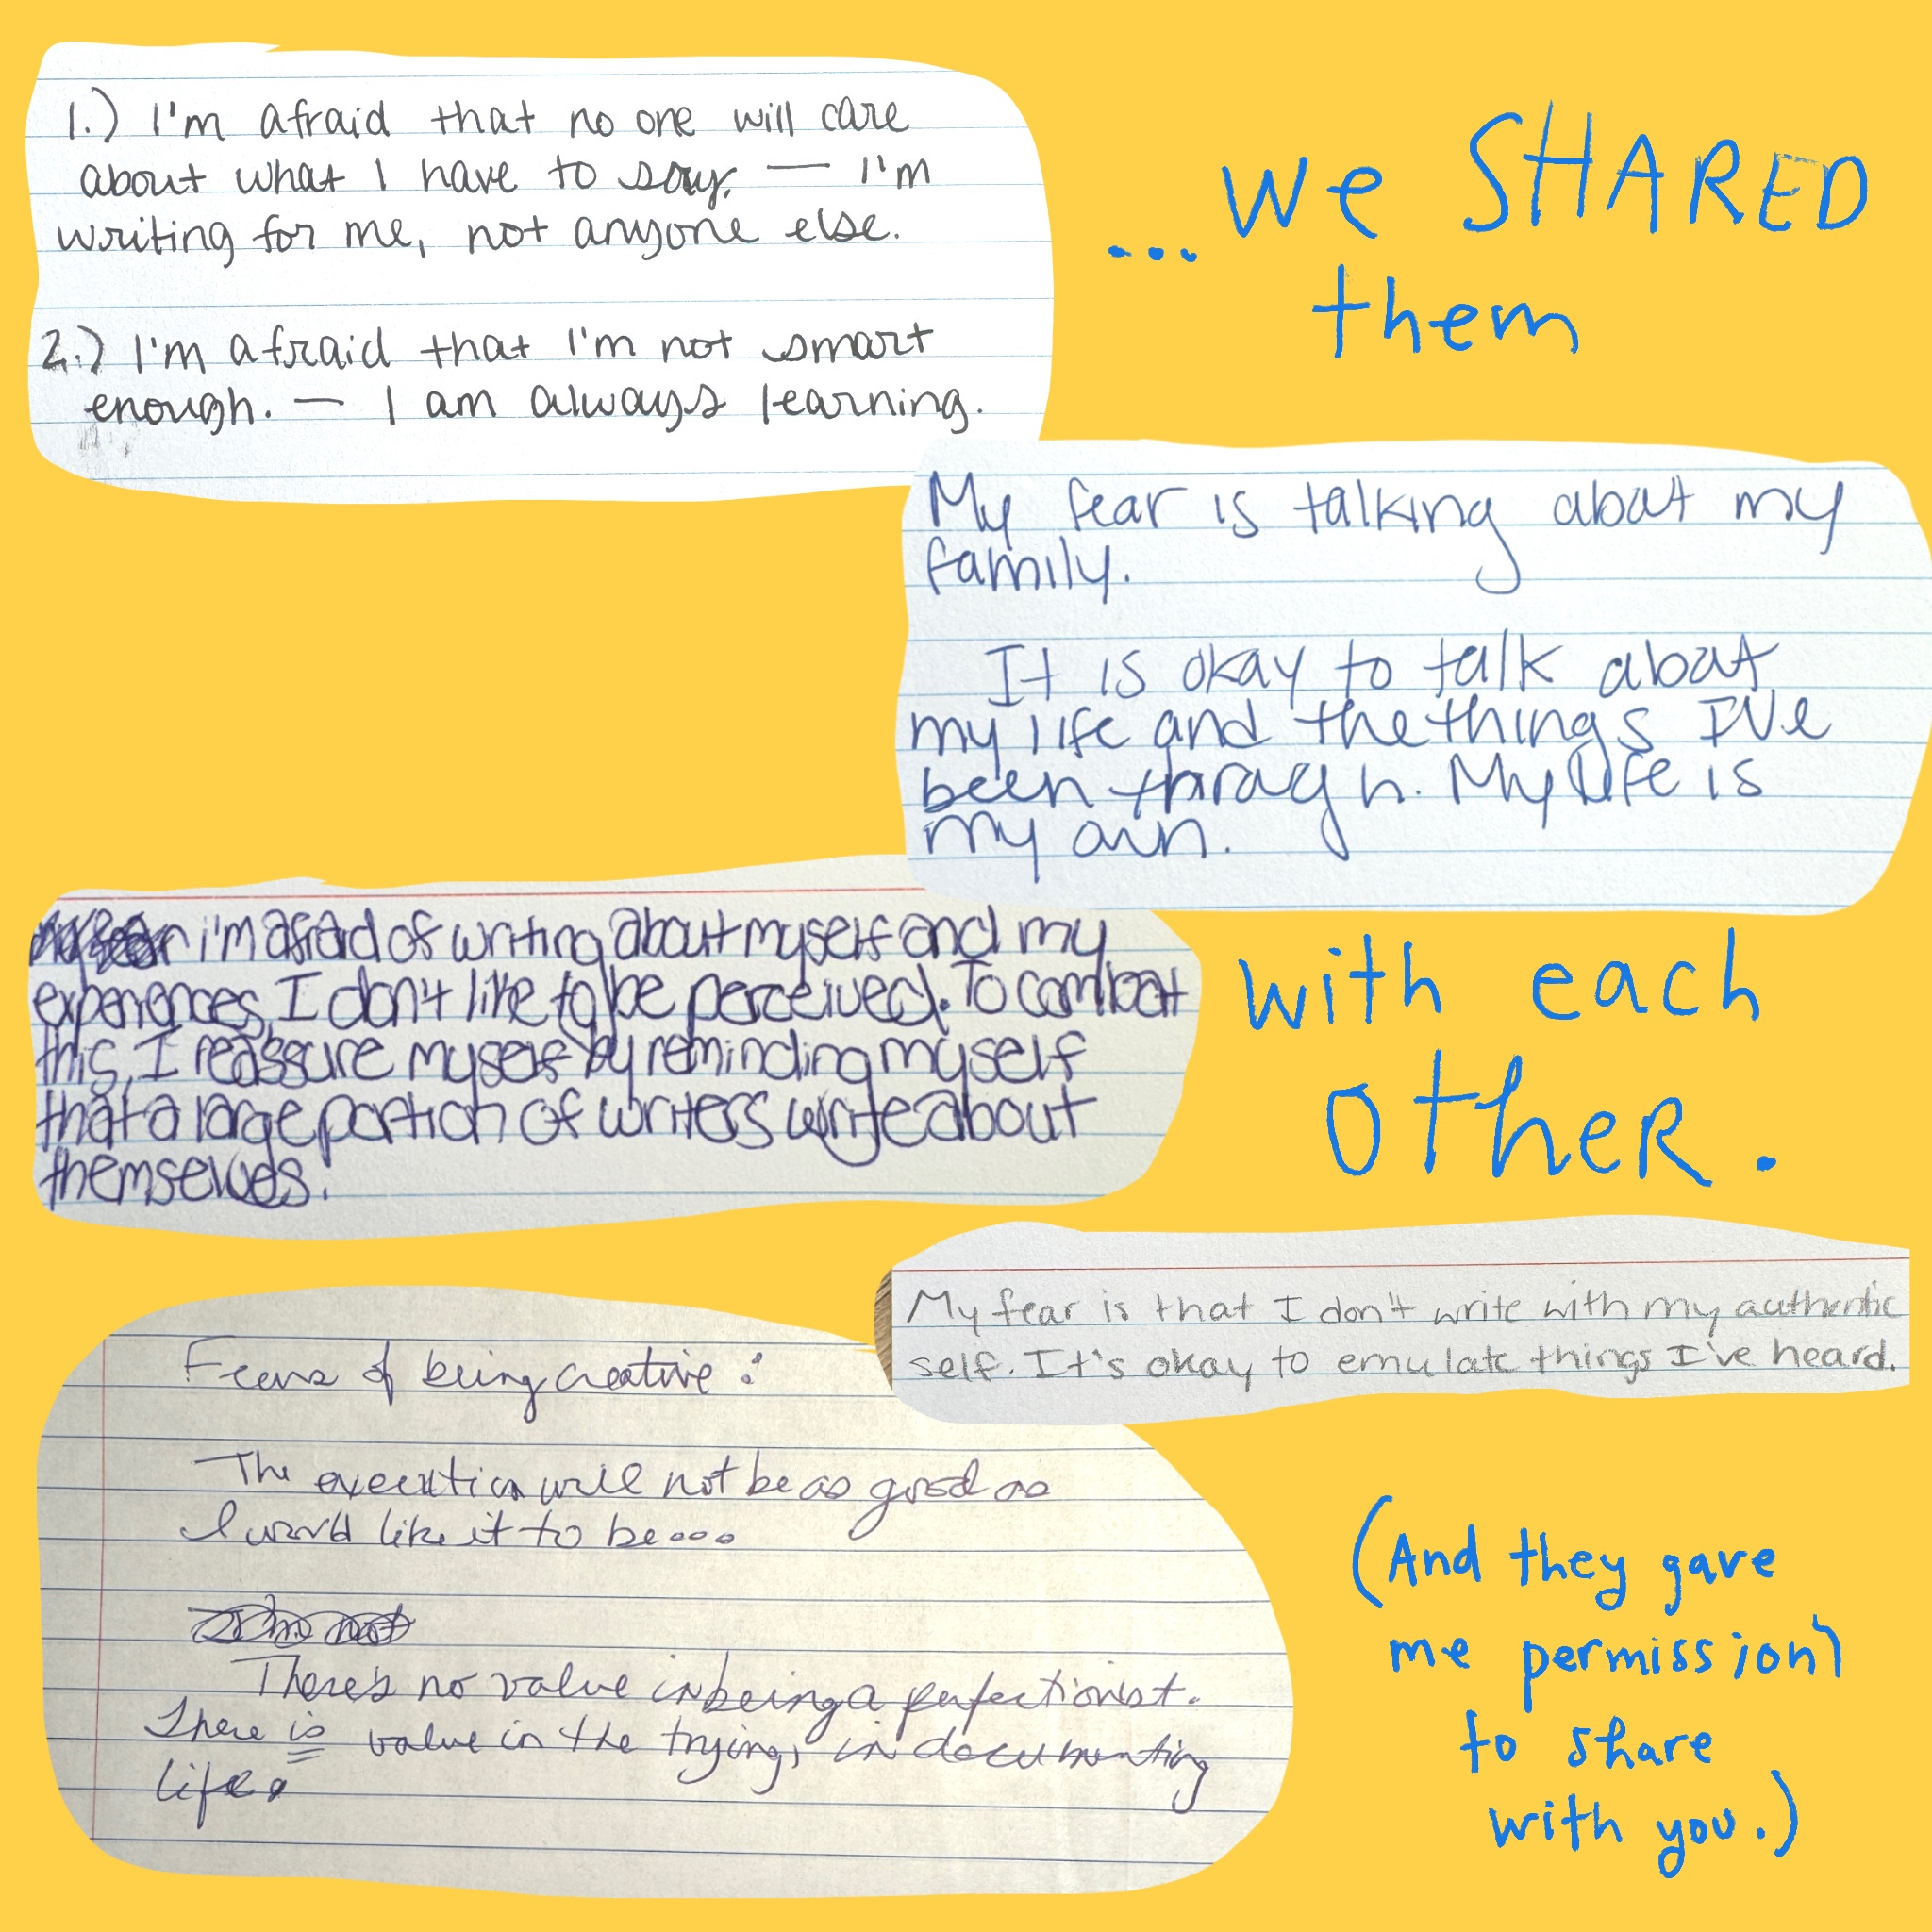 1.) I'm afraid that no one will care
about what I have to say. — I'm
writing for me, not anyone else.
2.) I'm afraid that I'm not smart
enough. — I am always learning.
...we SHARED
them
My fear is talking about my
family.
It is okay to talk about
my life and the things I've
been through. My life is
my own.
i'm afraid of writing about myself and my
experiences, I don't like to be perceived. To combat
this, I reassure myself by reminding myself
that a large portion of writers write about
themselves.
with each
other.
My fear is that I don't write with my authentic
self. It's okay to emulate things I've heard.
Fears of being creative:
The execution will not be as good as
I would like it to be...
There's no value in being a perfectionist.
There is value in the trying, in documenting
life.
(And they gave
me permission
to share
with you.)